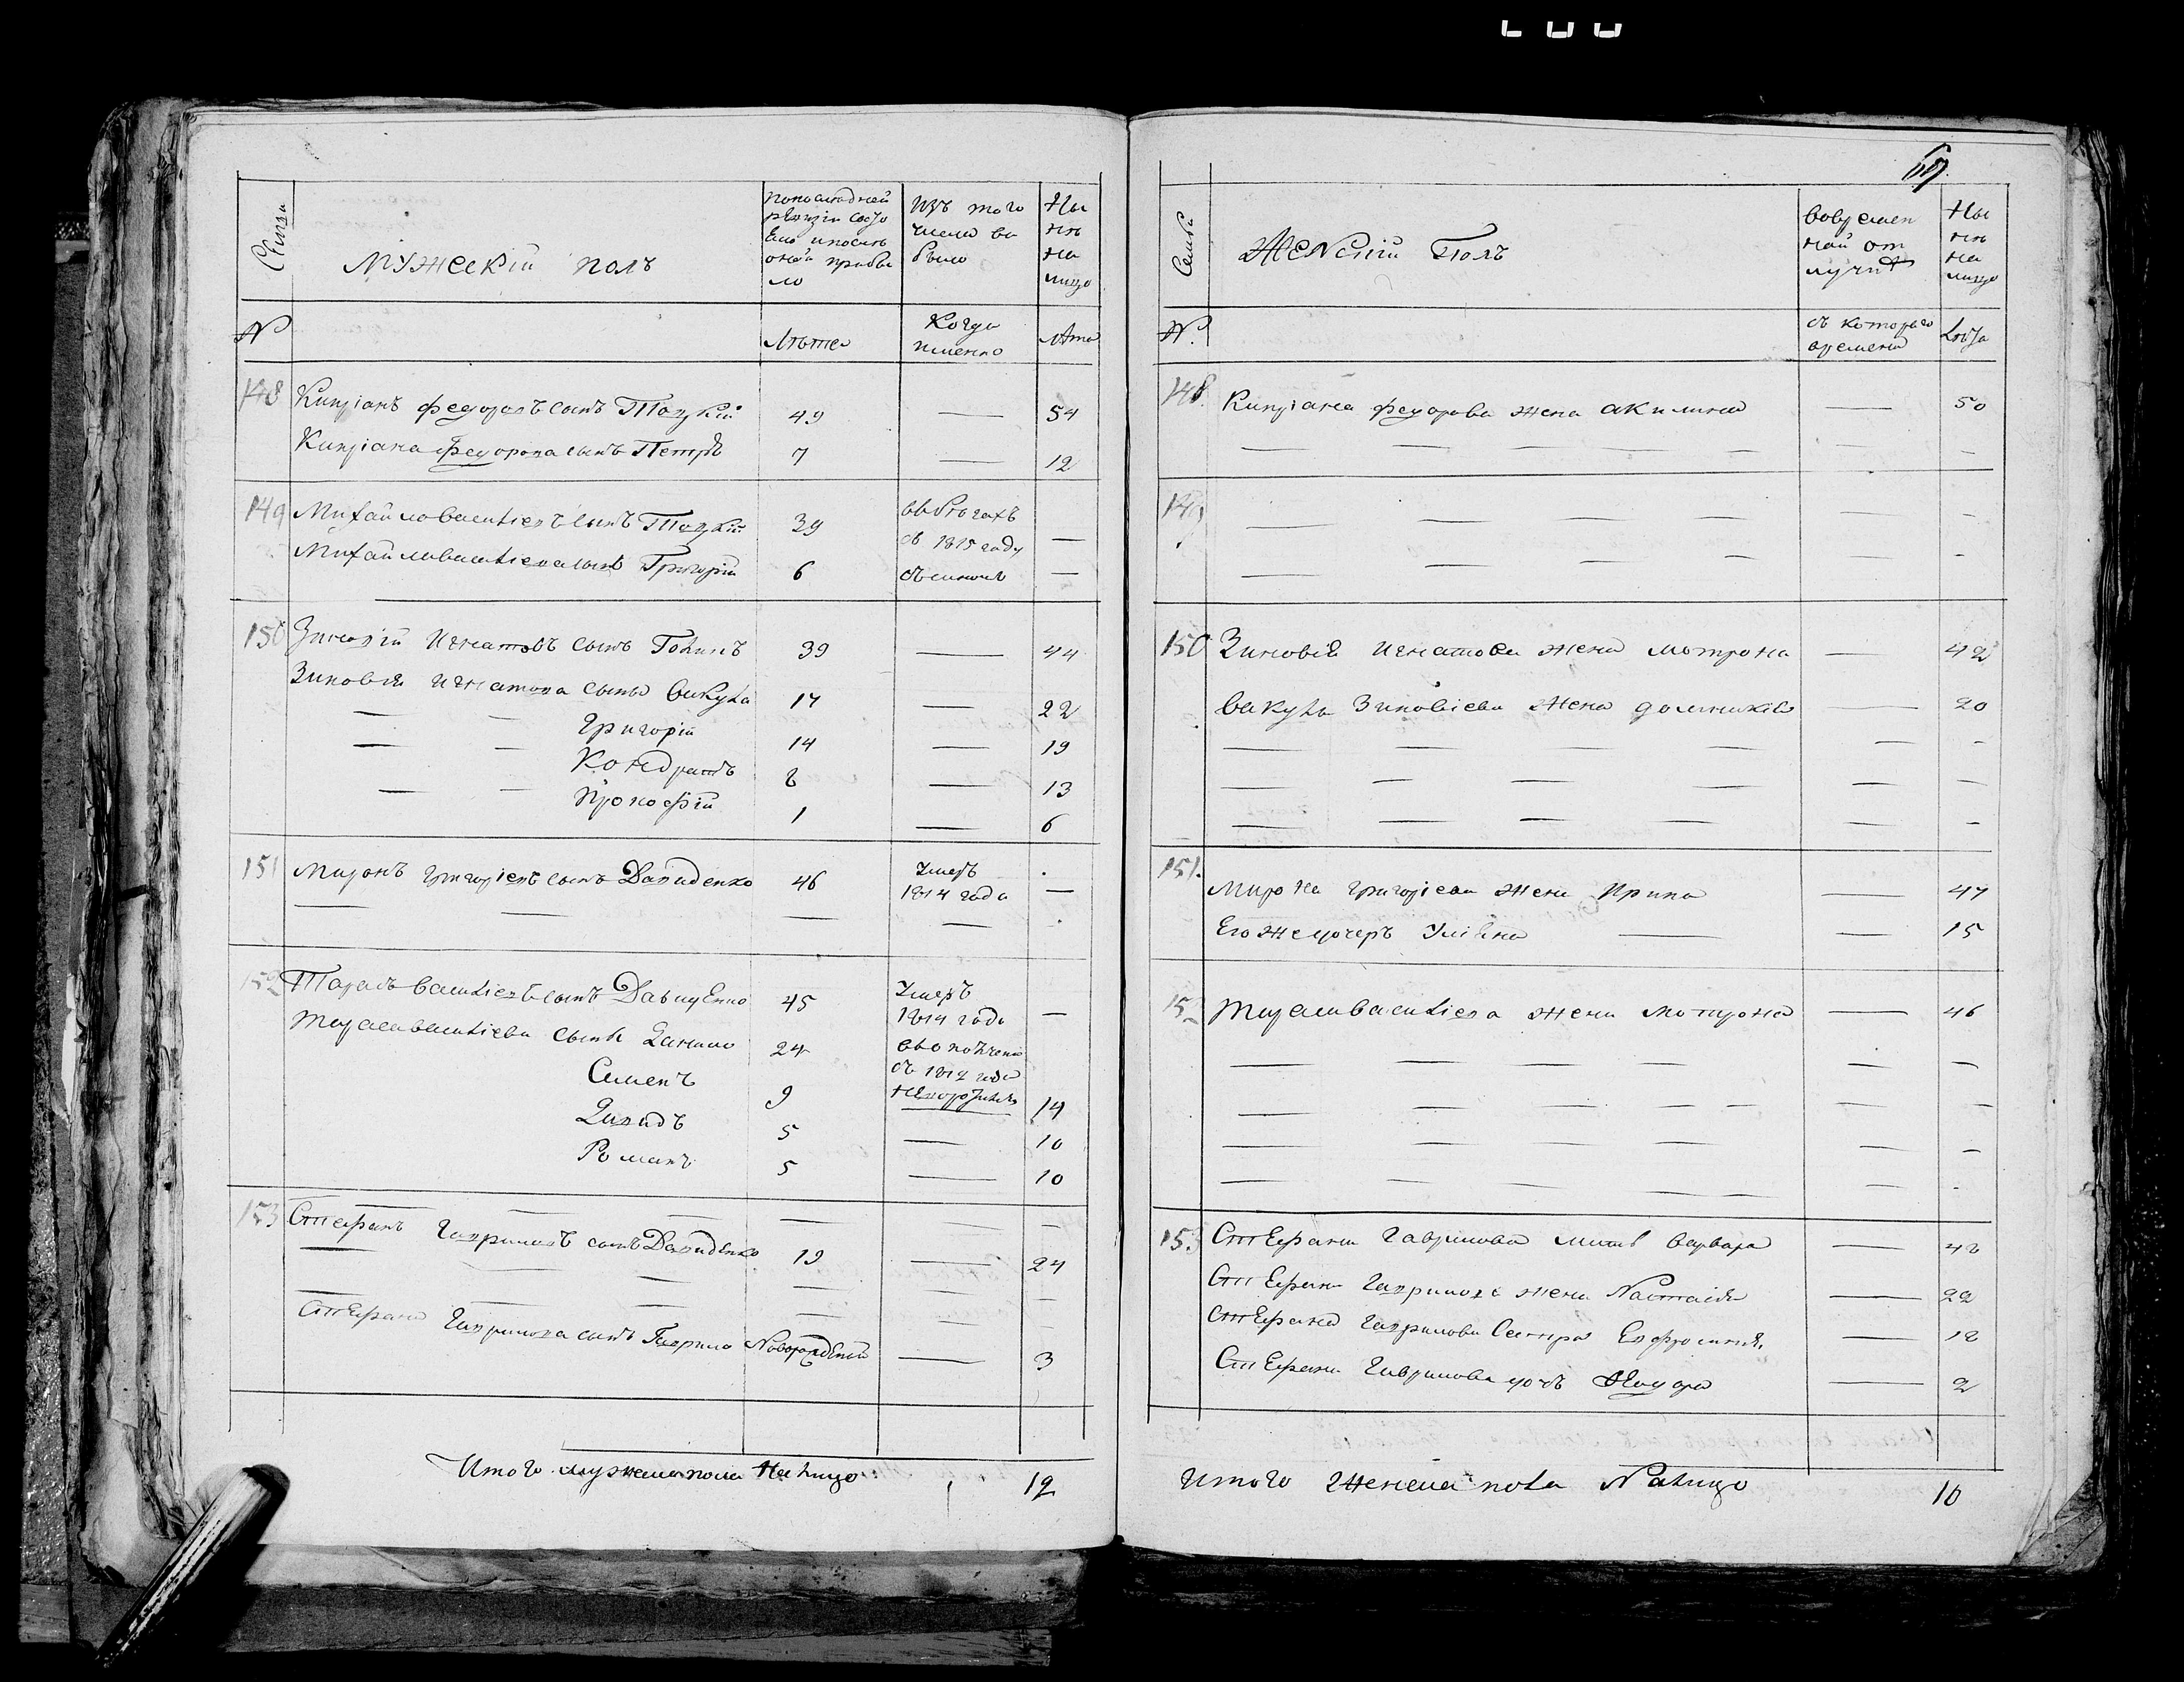 Семьи
Мужеский полъ
По последней
ревизіи состо
яло и после
оной прибы
ло
Изъ того
числа вы
было
Ны
не
на
лицо
№
Лета
Когда
именно
Лета
148 Кипріанъ Федоровъ сынъ 49 — 54
Кипріана Федорова сынъ Петръ 7 — 12
149 Михайло Васильевъ сынъ 39 в бегахъ
съ 1815 году —
Михайла Васильева сынъ Григорій 6 —
150 Зиновій Игнатовъ сынъ 39 — 44
Зиновія Игнатова сыны Вакула 17 — 22
— — Григорій 14 — 19
— — Кондратъ 8 — 13
— — Прокофій 1 — 6
151 Миронъ Григорьевъ сынъ Давиденко 46 Умеръ
1814 года —
— — — — .
152 Тарасъ Васильевъ сынъ Давиденко 45 Умеръ
1814 года —
Тараса Васильева сынъ Данило 24
съ 1812 года
Семенъ 9 14
Давидъ 5 — 10
Романъ 5 — 10
153 — — — — — —
Стефанъ Гавриловъ сынъ Давиденко 19 — 24
— — — — — —
— — — — — —
Стефана Гаврилова сынъ Гаврило Новорожденный — 3
Итого мужеска пола на лицо 12
Семьи
Женскій Полъ
Во времен
ной от
лучке
Ны
не
на
лицо
№.
съ котораго
времени
Лета
148. Кипріана Федорова жена Акилина — 50
— — — — — —
149 — — — — — —
— — — — — —
150 Зиновія Игнатова жена Мотрона — 42
Вакулы Зиновіева жена — 20
— — — — — —
— — — — — —
— — — — — —
151. Мирона Григорьева жена Ирина — 47
Его же дочерь Уліяна — — 15
152 Тараса Васильева жена Мотрона — 46
— — — — — —
— — — — — —
— — — — — —
— — — — — —
153 Стефана Гаврилова мать Варвара — 48
Стефана Гаврилова жена Настасія — 22
Стефана Гаврилова сестра Ефросинія — 18
Стефана Гаврилова дочь — 2
Итого женска пола на лицо 10